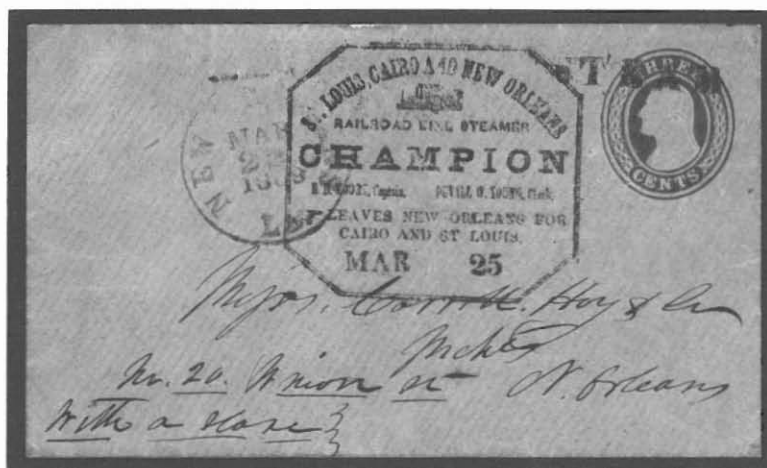 ST. LOUIS, CAIRO AND NEW ORLEANS
RAILROAD LINE STEAMER
CHAMPION
Captain. Clerk.
LEAVES NEW ORLEANS FOR
CAIRO AND ST LOUIS,
MAR 25
NEW
MAR
LA
THREE
CENTS
Messrs. Carroll. Hoy & Co
No. 20. Union st N. Orleans
With a slave